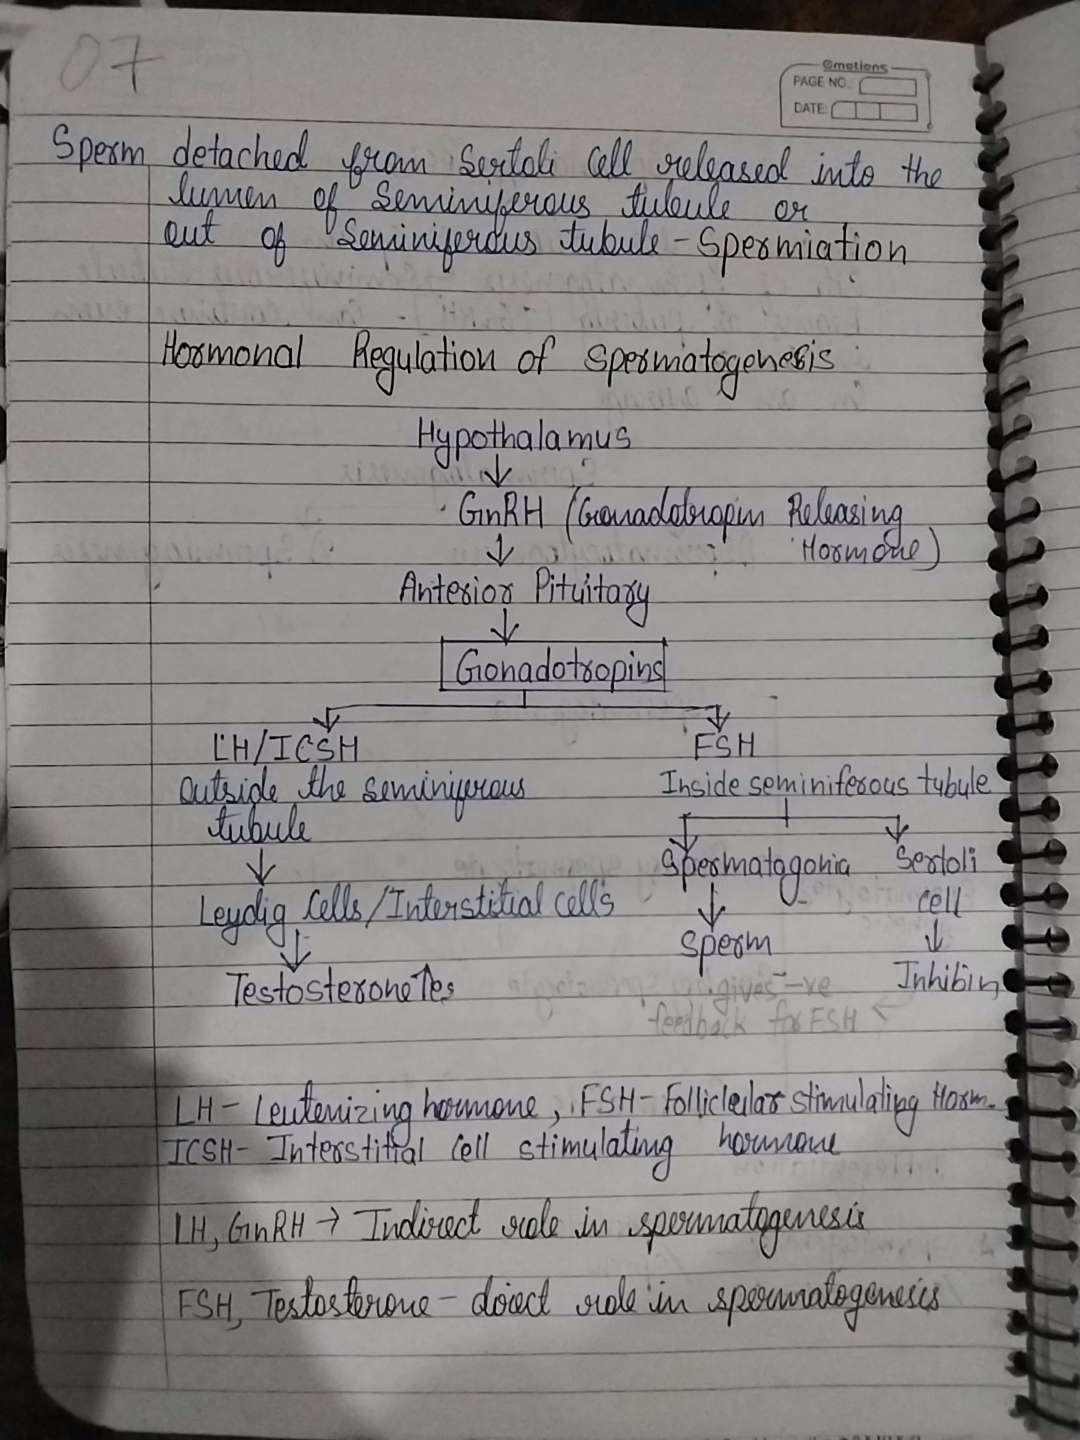 07
emotions
PAGE NO.
DATE:
Sperm detached from Sertoli Cell released into the
lumen of Seminiferous tubule or
out of Seminiferous tubule - Spermiation
Hormonal Regulation of spermatogenesis
Hypothalamus
↓
GnRH (Gonadotropin Releasing
Hormone)
↓
Anterior Pituitary
↓
Gonadotropins
LH/ICSH FSH
outside the seminiferous Inside seminiferous tubule
tubule
↓
Spermatogonia Sertoli
cell
Leydig Cells/Interstitial cells
↓ ↓ ↓
Sperm Inhibin
Testosterones
gives -ve
feedback for FSH ←
LH - Leutenizing hormone, FSH - Follicleular stimulating Horm.
ICSH - Interstitial Cell stimulating hormone
LH, GnRH → Indirect role in spermatogenesis
FSH, Testosterone - direct role in spermatogenesis